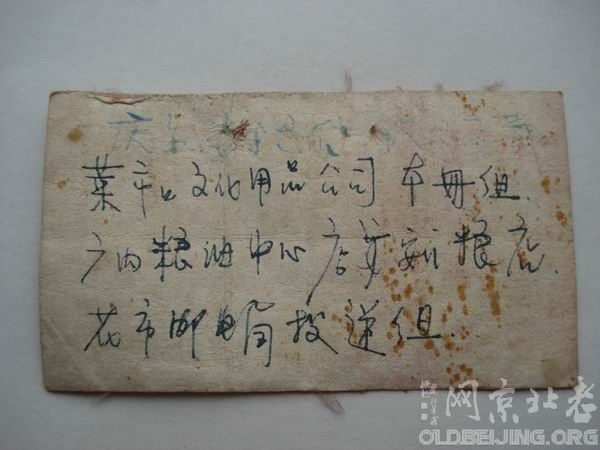 菜市口文化用品公司本册组.
广内粮油中心店 粮店.
花市邮电局投递组.
老北京网
OLDBEIJING.ORG